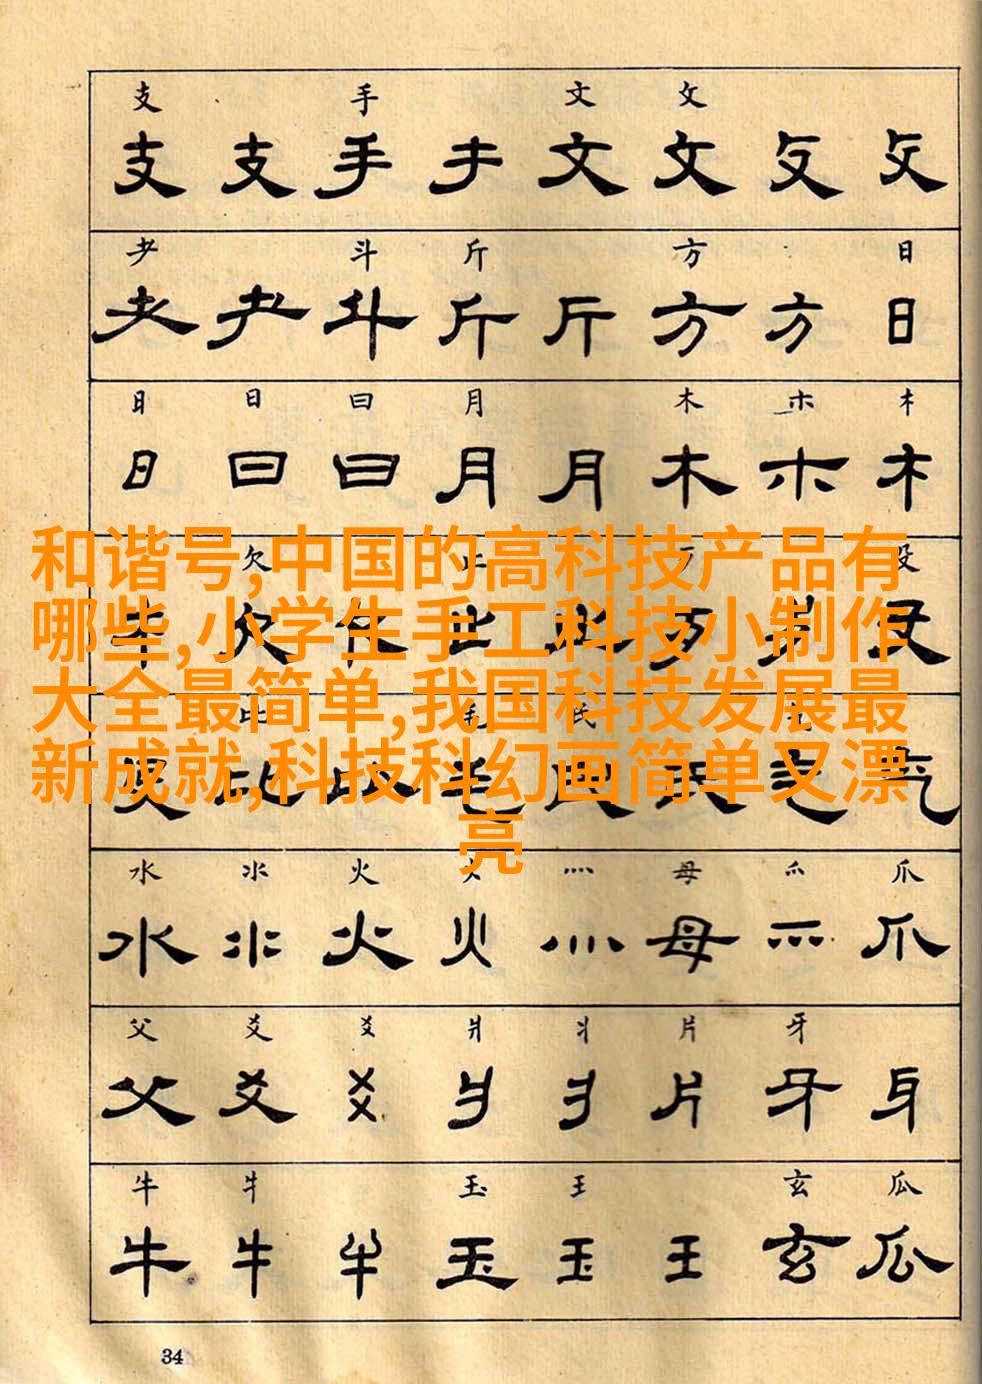 支 手 文 攵
支 支 手 手 文 攵
耂 斗 斤 方 日
斗 斤 斤 方 方 日
日 日 曰 月 木 朩
日 曰 曰 月 月 木 朩
欠 止
和谐号,中国的高科技产品有
哪些,小学生手工科技小制作
大全最简单,我国科技发展最
新成就,科技科幻画简单又漂
亮
比 毛 氏
水 氺 火 灬 母 爫 爪
水 氺 火 火 灬 母 爪
父 爻 㸚 爿 丬 片 牙
父 爻 㸚 爿 丬 片 牙
牛 牜 玉 王 玄 瓜
牛 牛 玉 玉 王 玄 瓜
34